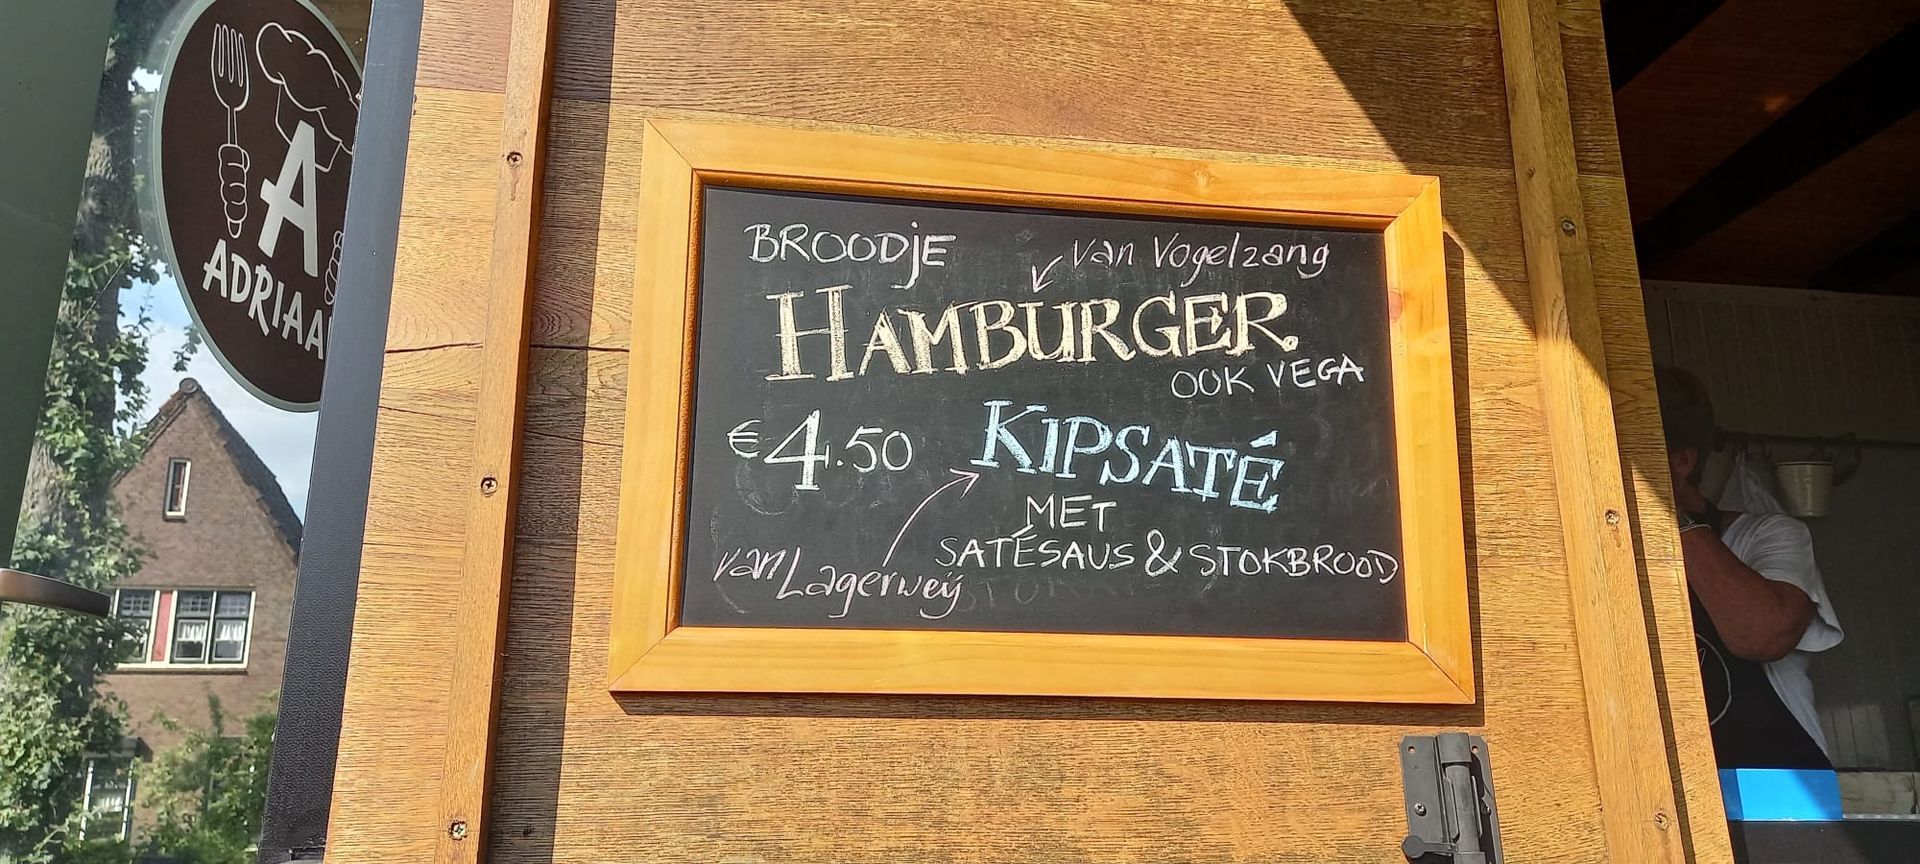 A
ADRIAA
BROODjE
van Vogelzang
HAMBURGER.
OOK VEGA
€4.50
KIPSATÉ
MET
SATÉSAUS & STOKBROOD
van Lagerweij